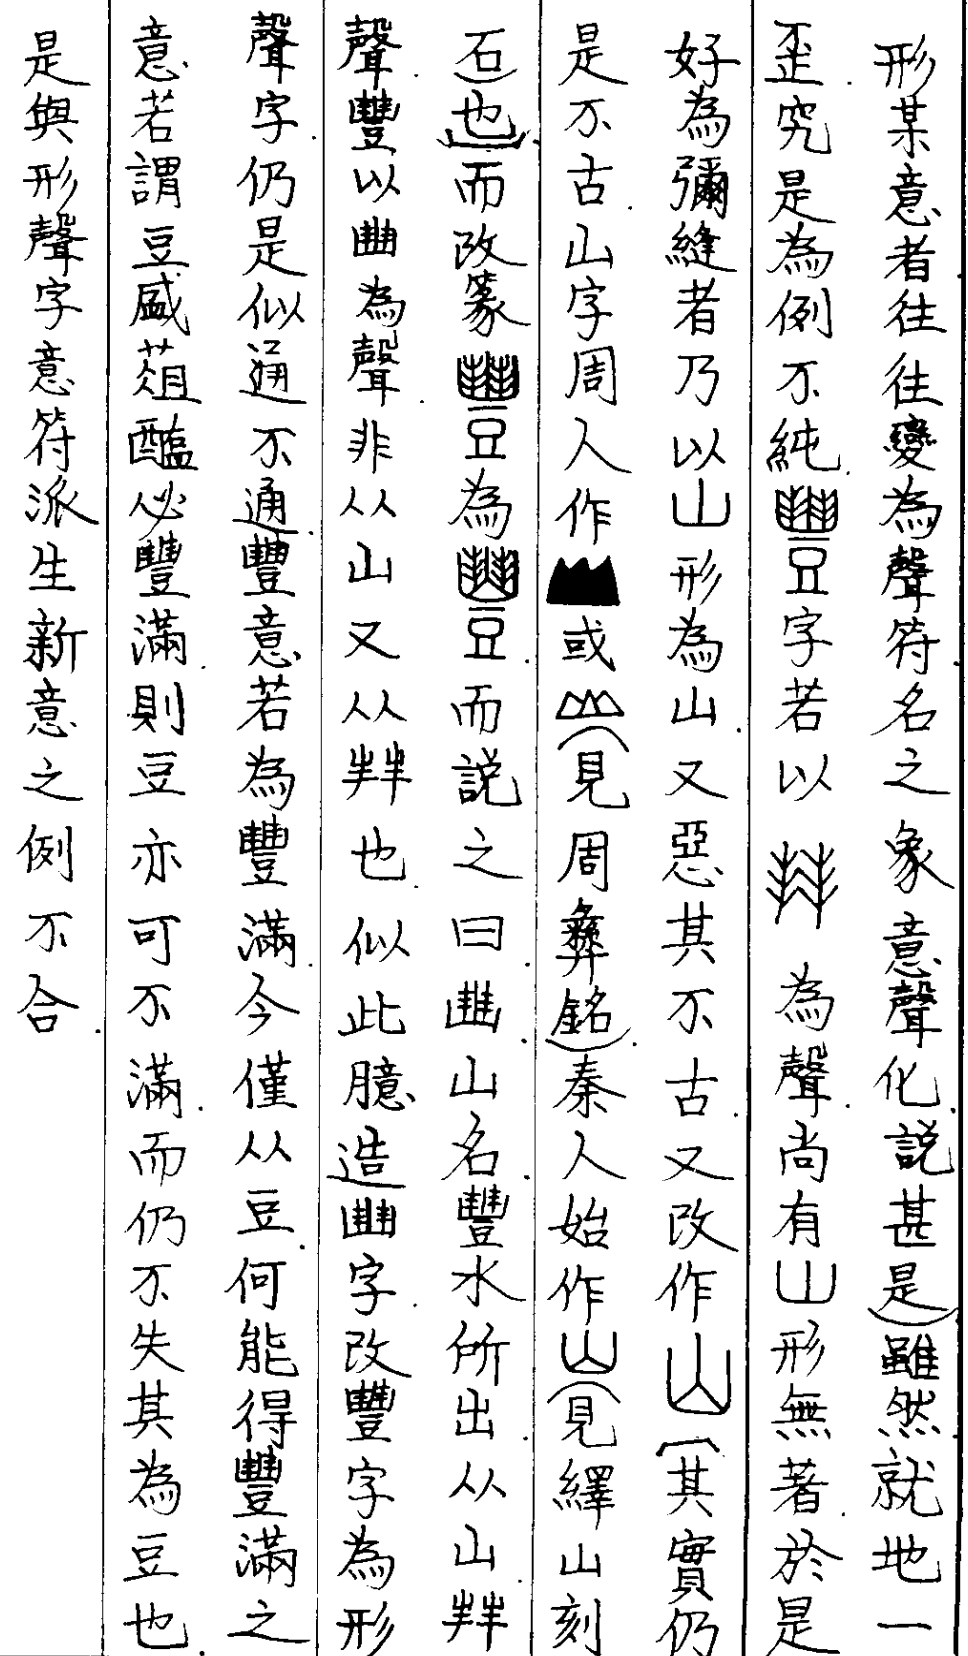 形某意者往往變為聲符名之象意聲化説甚是）雖然就地一
歪究是為例不純.豆字若以為聲.尚有山形無著.於是
好為彌縫者乃以山形為山.又惡其不古.又改作山（其實仍
是不古.山字周人作或（見周彝銘）.秦人始作山（見繹山刻
石）也）而改篆豆為豆.而説之曰.豐山名.豐水所出.从山丰丰
聲.豐以豐為聲.非从山又从丰丰也.似此臆造豐字.改豐字為形
聲字.仍是似通不通.豐意若為豐滿.今僅从豆.何能得豐滿之
意.若謂豆盛葅醢必豐滿.則豆亦可不滿.而仍不失其為豆也.
是與形聲字意符派生新意之例不合.